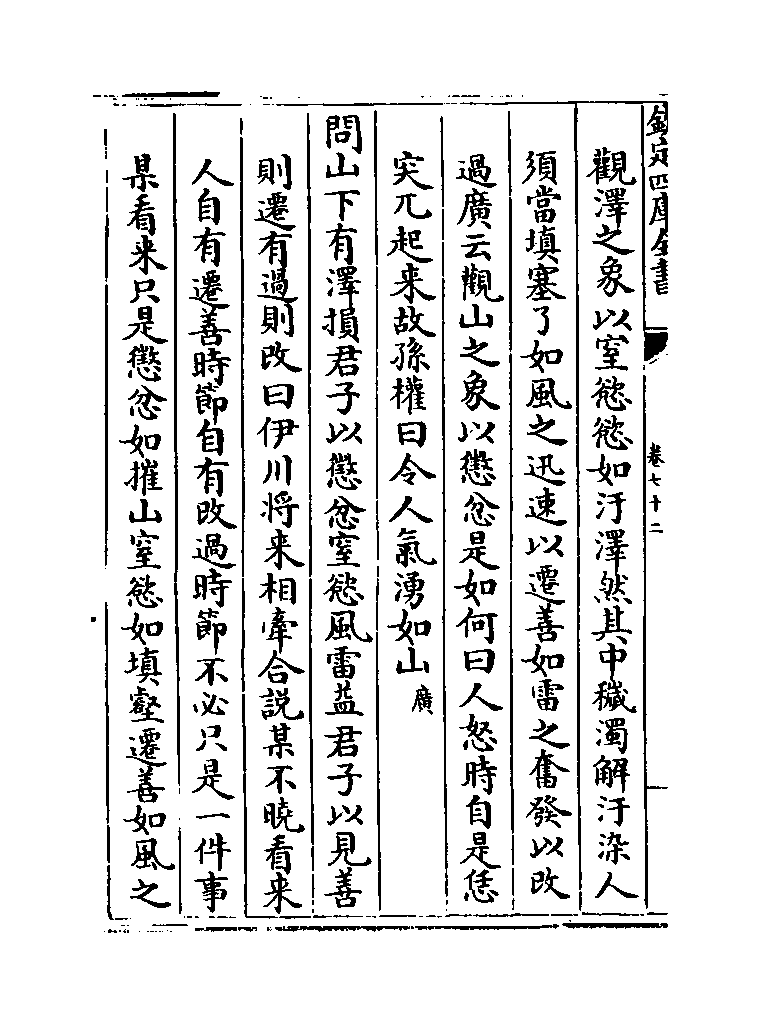 欽定四庫全書
卷七十二
觀澤之象以窒慾慾如汙澤然其中穢濁解汙染人
須當填塞了如風之迅速以遷善如雷之奮發以改
過廣云觀山之象以懲忿是如何曰人怒時自是恁
突兀起来故孫權曰令人氣湧如山廣
問山下有澤損君子以懲忿窒慾風雷益君子以見善
則遷有過則改曰伊川将来相牽合説某不曉看来
人自有遷善時節自有改過時節不必只是一件事
某看来只是懲忿如摧山窒慾如填壑遷善如風之